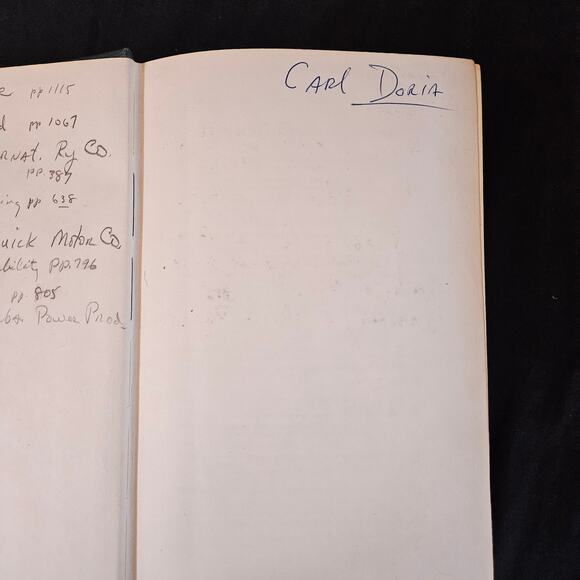 pp 1115
pp 1067
RNAT. Ry CO.
pp. 387
ing pp 638
uick Motor Co
bility pp. 796
pp. 805
Power Prod.
CARL DORIA